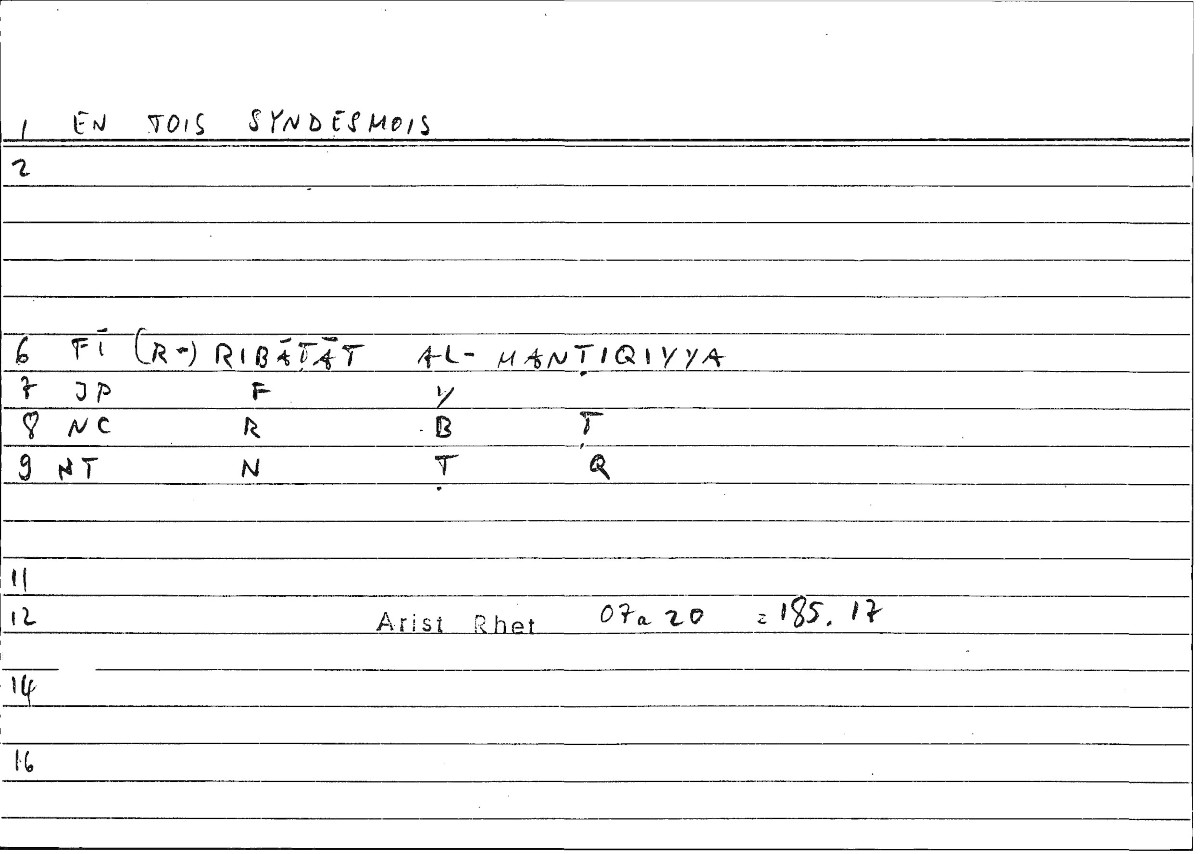 1 EN TOIS SYNDESMOIS
2
6 FĪ (R-) RIBĀṬĀT AL- MANṬIQIYYA
7 JP F Y
8 NC R B Ṭ
9 NT N Ṭ Q
11
12 Arist Rhet 07a 20 = 185. 17
14
16